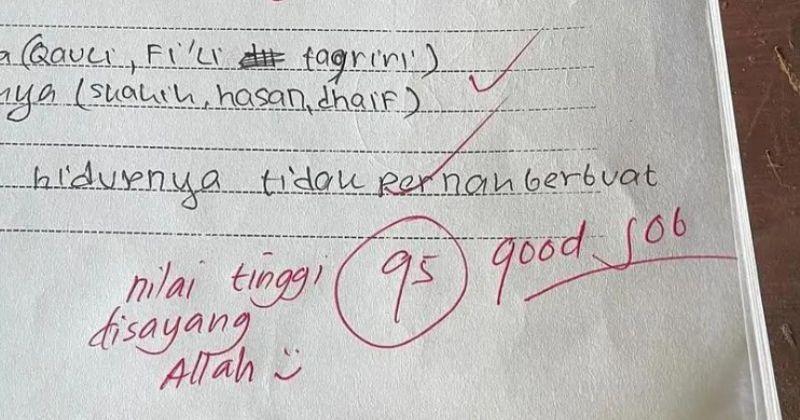 a (Qauli, Fi'li taqriri)
nya (shahih, hasan, dhaif)
hidupnya tidak pernah berbuat
nilai tinggi
disayang
Allah
95
good job